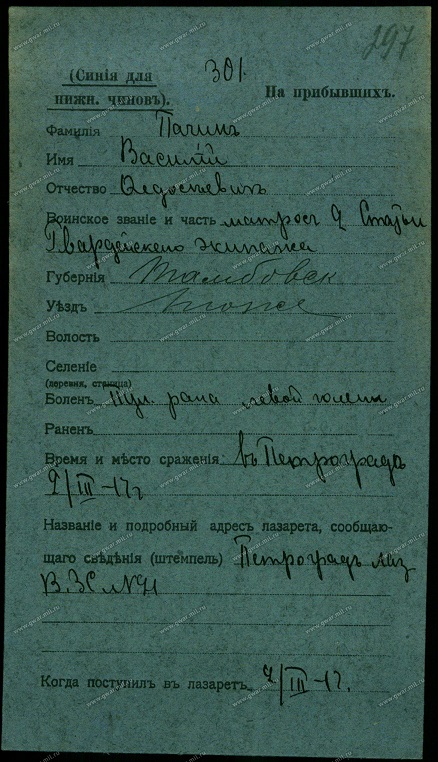 297
301
(Синія для
нижн. чиновъ).
На прибывшихъ.
Фамилія Пачинъ
Имя Василій
Отчество Федосѣевичъ
Воинское званіе и часть матросъ 2 Статьи
Гвардейскаго экипажа
Губернія Тамбовск
Уѣздъ
Волость
Селеніе
(деревня, станица)
Боленъ пул. рана левой голени
Раненъ
Время и мѣсто сраженія: въ Петроградѣ
/III–17 г
Названіе и подробный адресъ лазарета, сообщаю-
щаго свѣдѣнія (штемпель) Петроградъ лаз
В.З.
Когда поступилъ въ лазаретъ /III–17.